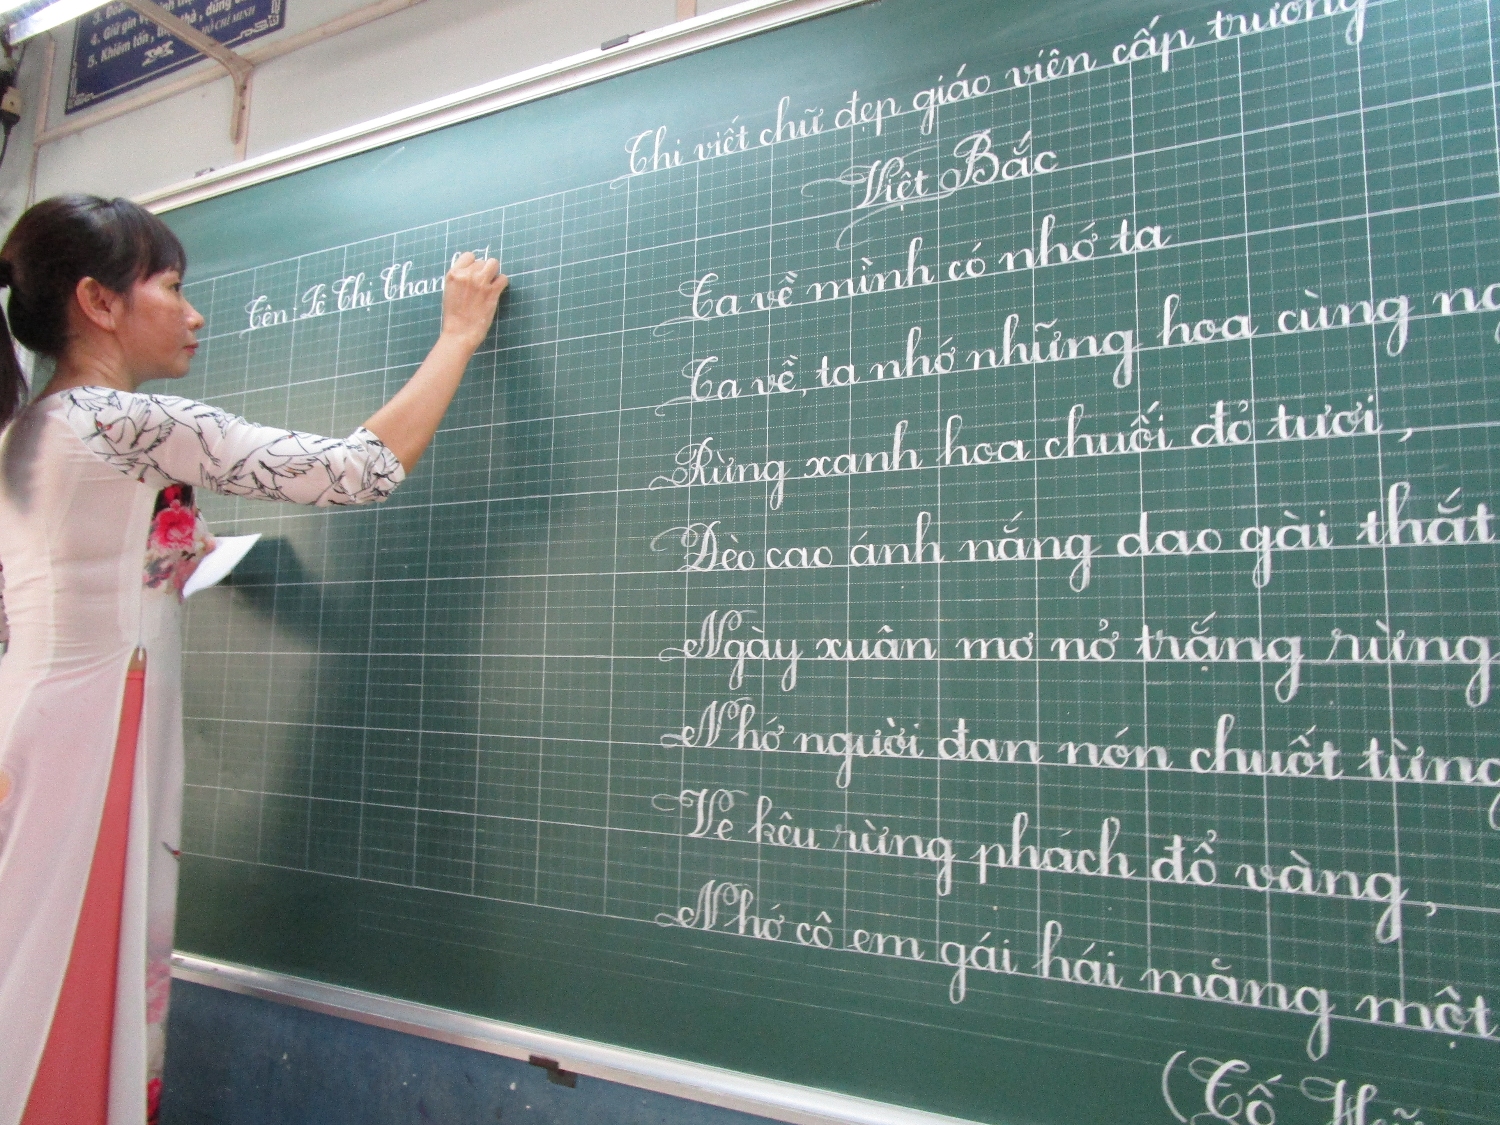 4. Giữ gìn
5. Khiêm tốn, thật thà, dũng
HỒ CHÍ MINH
Thi viết chữ đẹp giáo viên cấp trường
Việt Bắc
Tên: Lê Thị Thanh
Ta về mình có nhớ ta
Ta về, ta nhớ những hoa cùng
Rừng xanh hoa chuối đỏ tươi,
Đèo cao ánh nắng dao gài thắt
Ngày xuân mơ nở trắng rừng
Nhớ người đan nón chuốt từng
Ve kêu rừng phách đổ vàng,
Nhớ cô em gái hái măng một
(Tố Hữu